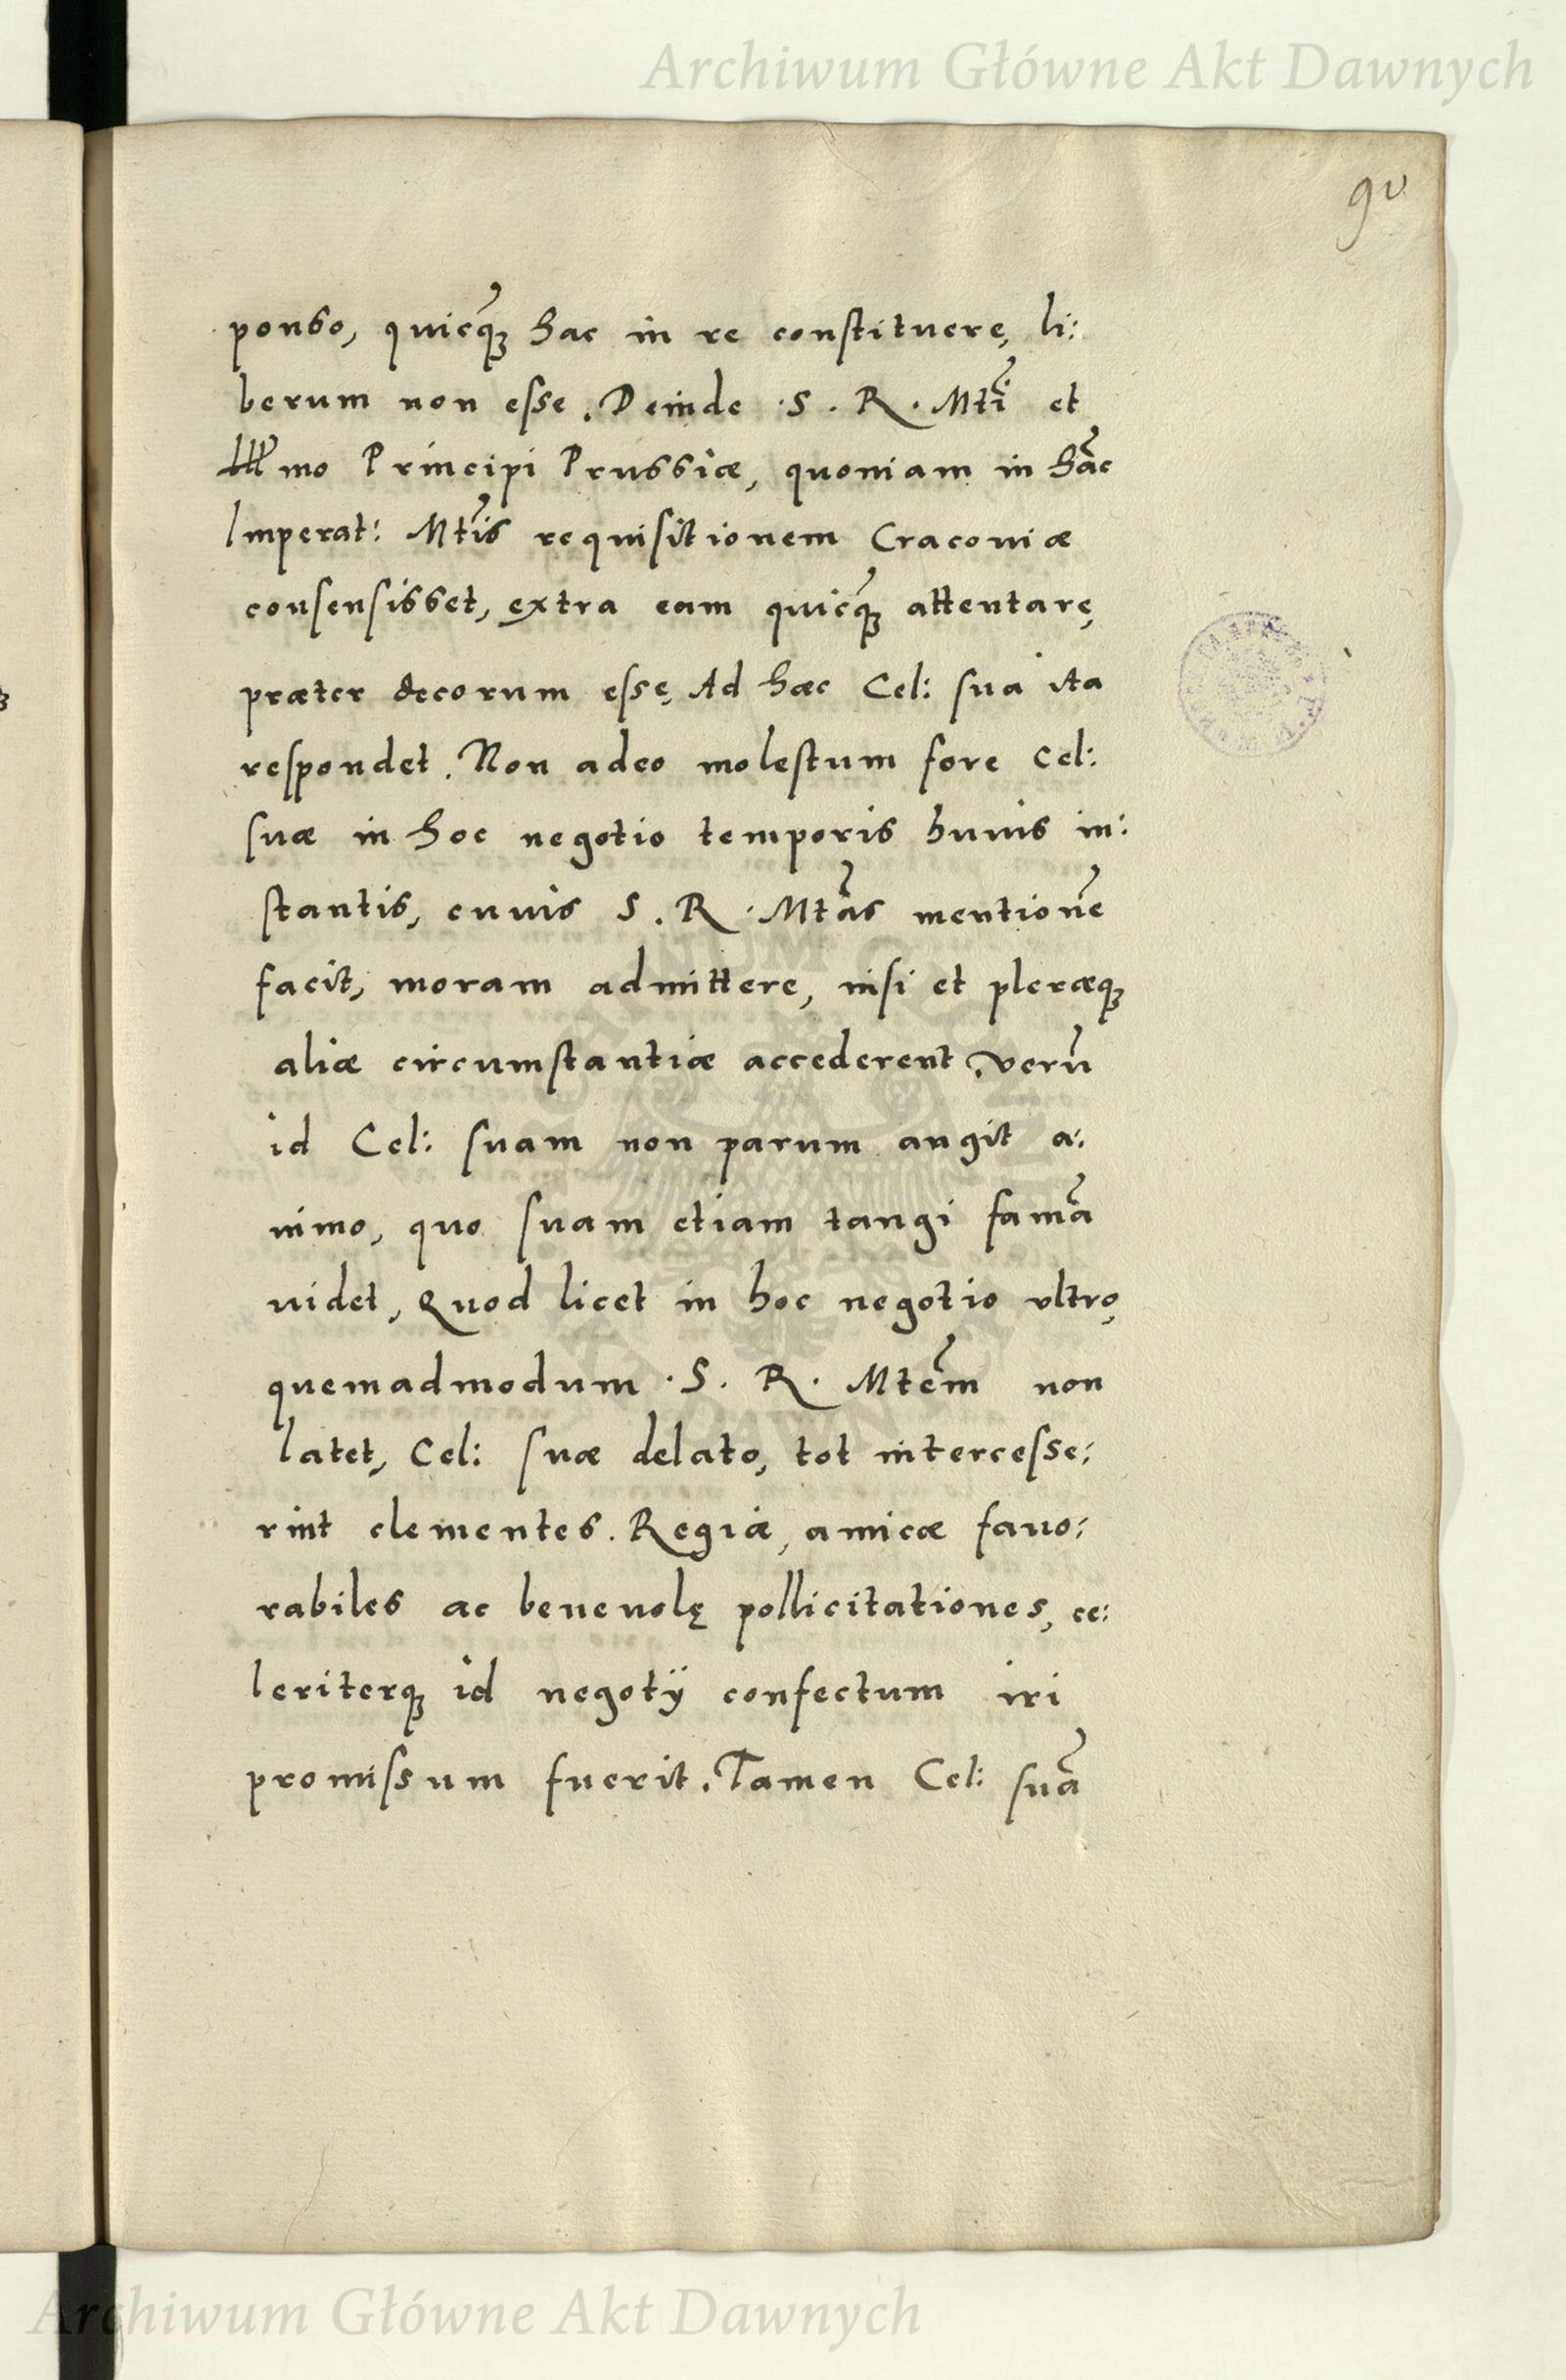 Archiwum Główne Akt Dawnych
90
ponso, quicq̃ꝫ hac in re constituere, li:
berum non esse. Deinde S. R. Mtĩ et
Illr̃mo Principi Prussiæ, quoniam in hãc
Imperat: Mtĩs requisitionem Cracouiæ
consensisset, extra eam quicq̃ꝫ attentare,
præter decorum esse, Ad hæc Cel: sua ita
respondet. Non adeo molestum fore Cel:
suæ in hoc negotio temporis huius in:
stantis, cuius S. R. Mtãs mentionẽ
facit, moram admittere, nisi et pleræqꝫ
aliæ circumstantiæ accederent, verũ
id Cel: suam non parum angit a:
nimo, quo suam etiam tangi famã
uidet, Quod licet in hoc negotio vltro,
quemadmodum S. R. Mtẽm non
latet, Cel: suæ delato, tot intercesse:
rint clementes. Regiæ, amicæ fauo:
rabiles ac beneuolę pollicitationes, ce:
leriterqꝫ id negotÿ confectum iri
promissum fuerit. Tamen Cel: suã
Archiwum Główne Akt Dawnych